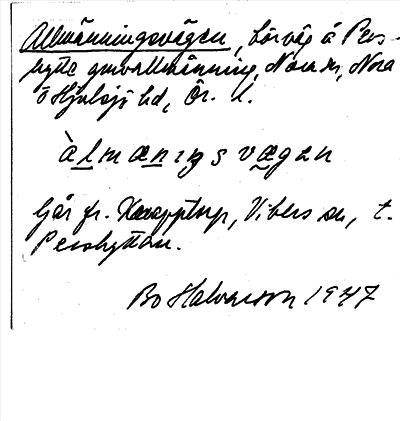 Allmänningsvägen, körväg å Pers-
hytte gruvallmänning, Nora sn, Nora
o Hjulsjö hd, Ör. l.
àlmæniŋsvægen
Går fr. Knapptorp, Vikers sn, t.
Pershyttan.
Bo Halvarson 1947